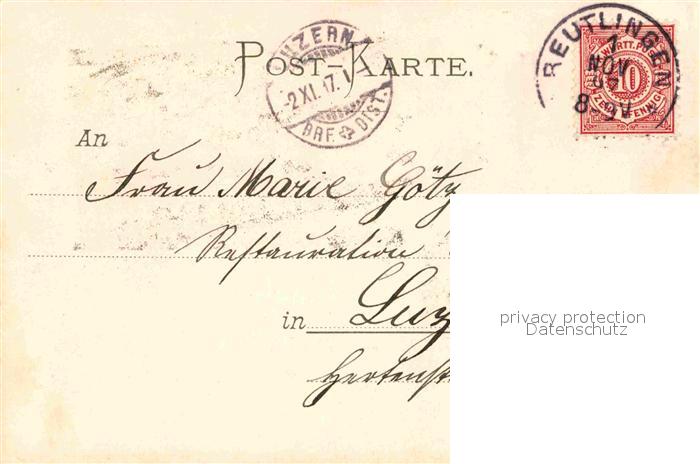 POST-KARTE.
LUZERN
-2.XI. 17. 
BRF. DIST.
REUTLINGEN
1
NOV
8-9A
WÜRTT. POST
10
ZEHN PFENNIG
An
Frau Marie Götz
Restauration
in Luz
Hertenst
privacy protection
Datenschutz